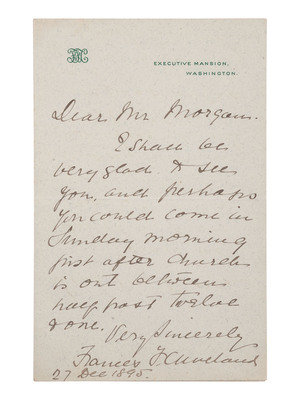 EXECUTIVE MANSION,
WASHINGTON.
Dear Mr Morgan.
I shall be
very glad to see
you, and perhaps
you could come in
Sunday morning
just after church
is out between
half past twelve
& one.
Very Sincerely
Frances F. Cleveland
27 Dec 1895.